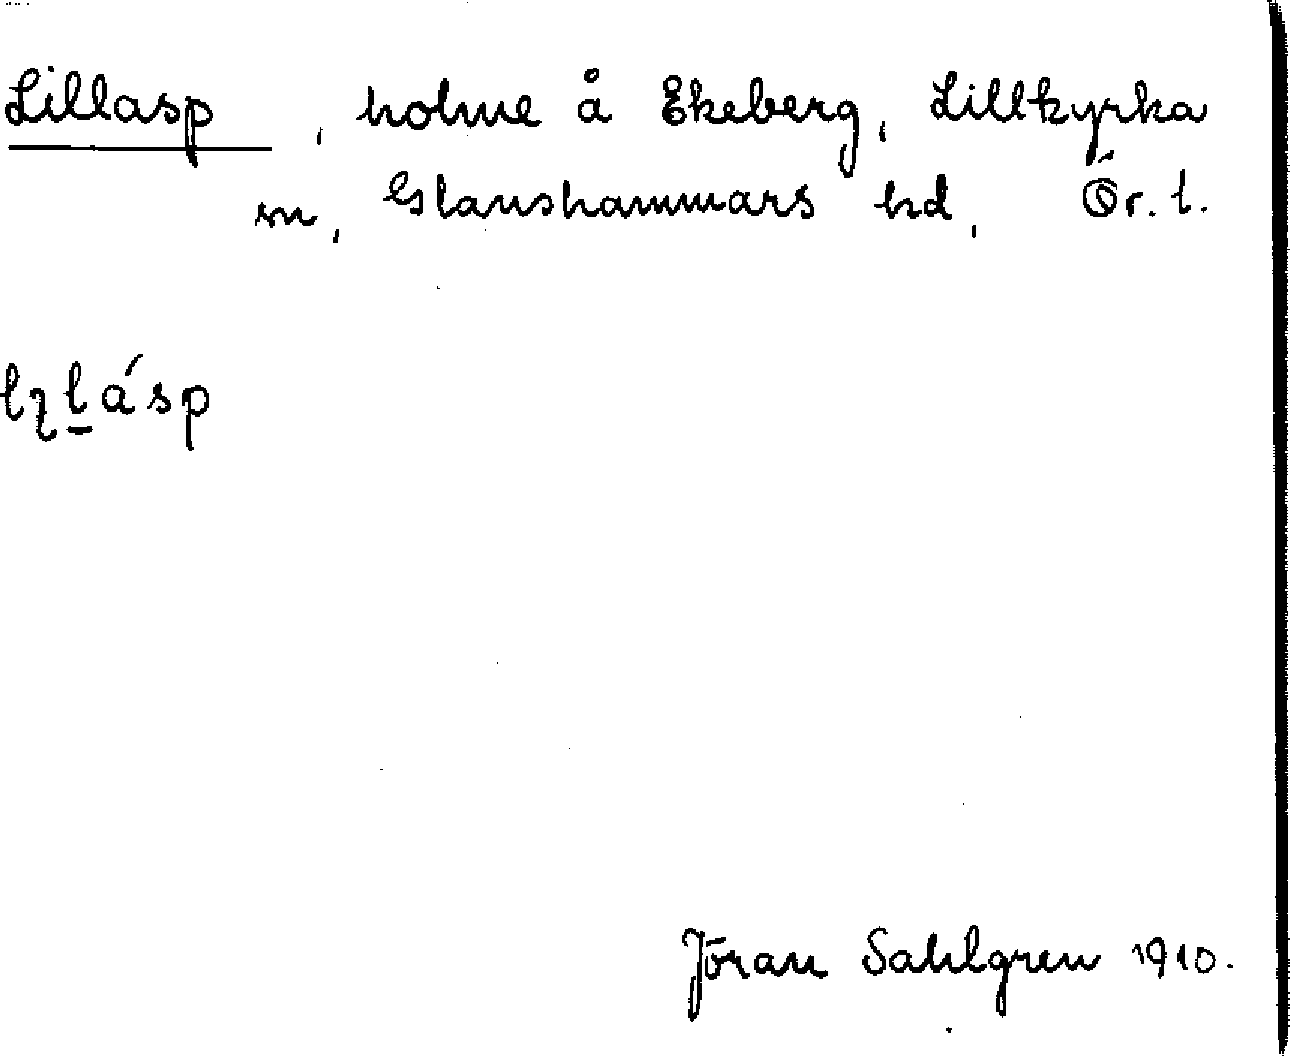 Lillasp, holme å Ekeberg, Lillkyrka
sn, Glanshammars hd, Ör. l.
Jöran Sahlgren 1910.